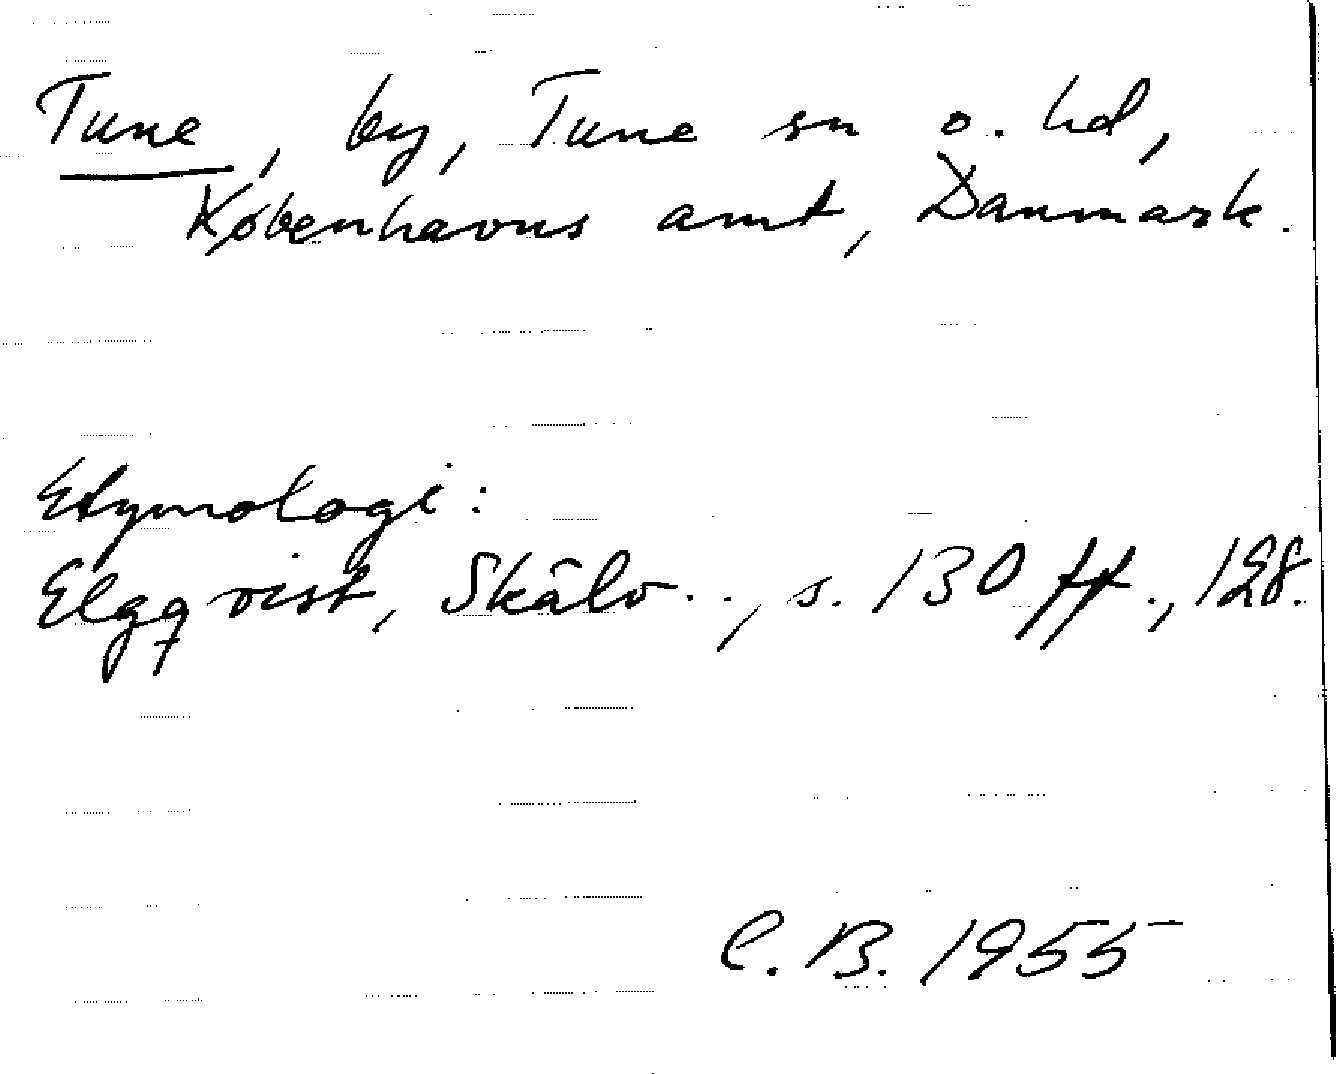 Tune, by, Tune sn o. hd,
Københavns amt, Danmark.
Etymologi:
Elgqvist, Skälv.., s. 130 ff., 128.
C. B. 1955